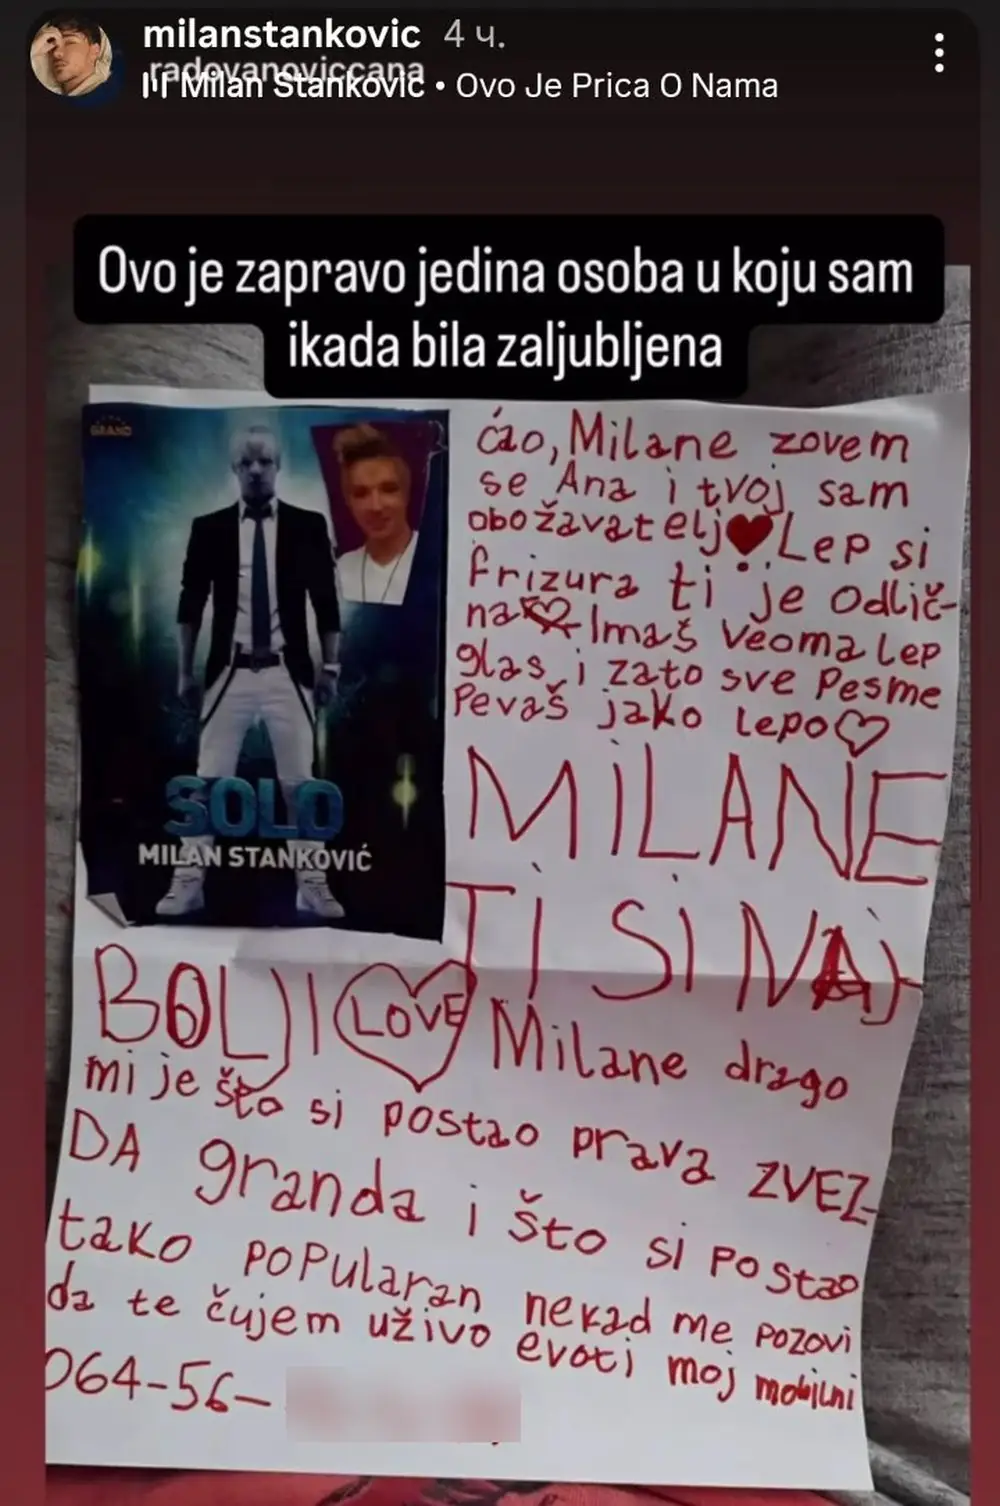 milanstankovic 4 ч.
radovanoviccana
Milan Stanković • Ovo Je Prica O Nama
Ovo je zapravo jedina osoba u koju sam
ikada bila zaljubljena
GRAND
SOLO
MILAN STANKOVIĆ
ćao, Milane zovem
se Ana i tvoj sam
obožavatelj Lep si
frizura ti je odlič-
na Imaš veoma lep
glas i zato sve Pesme
Pevaš jako lepo
MILANE
TI SI NAJ
BOLJI LOVE Milane drago
mi je što si postao prava ZVEZ-
DA granda i što si postao
tako popularan nekad me pozovi
da te čujem uživo evoti moj mobilni
064-56-